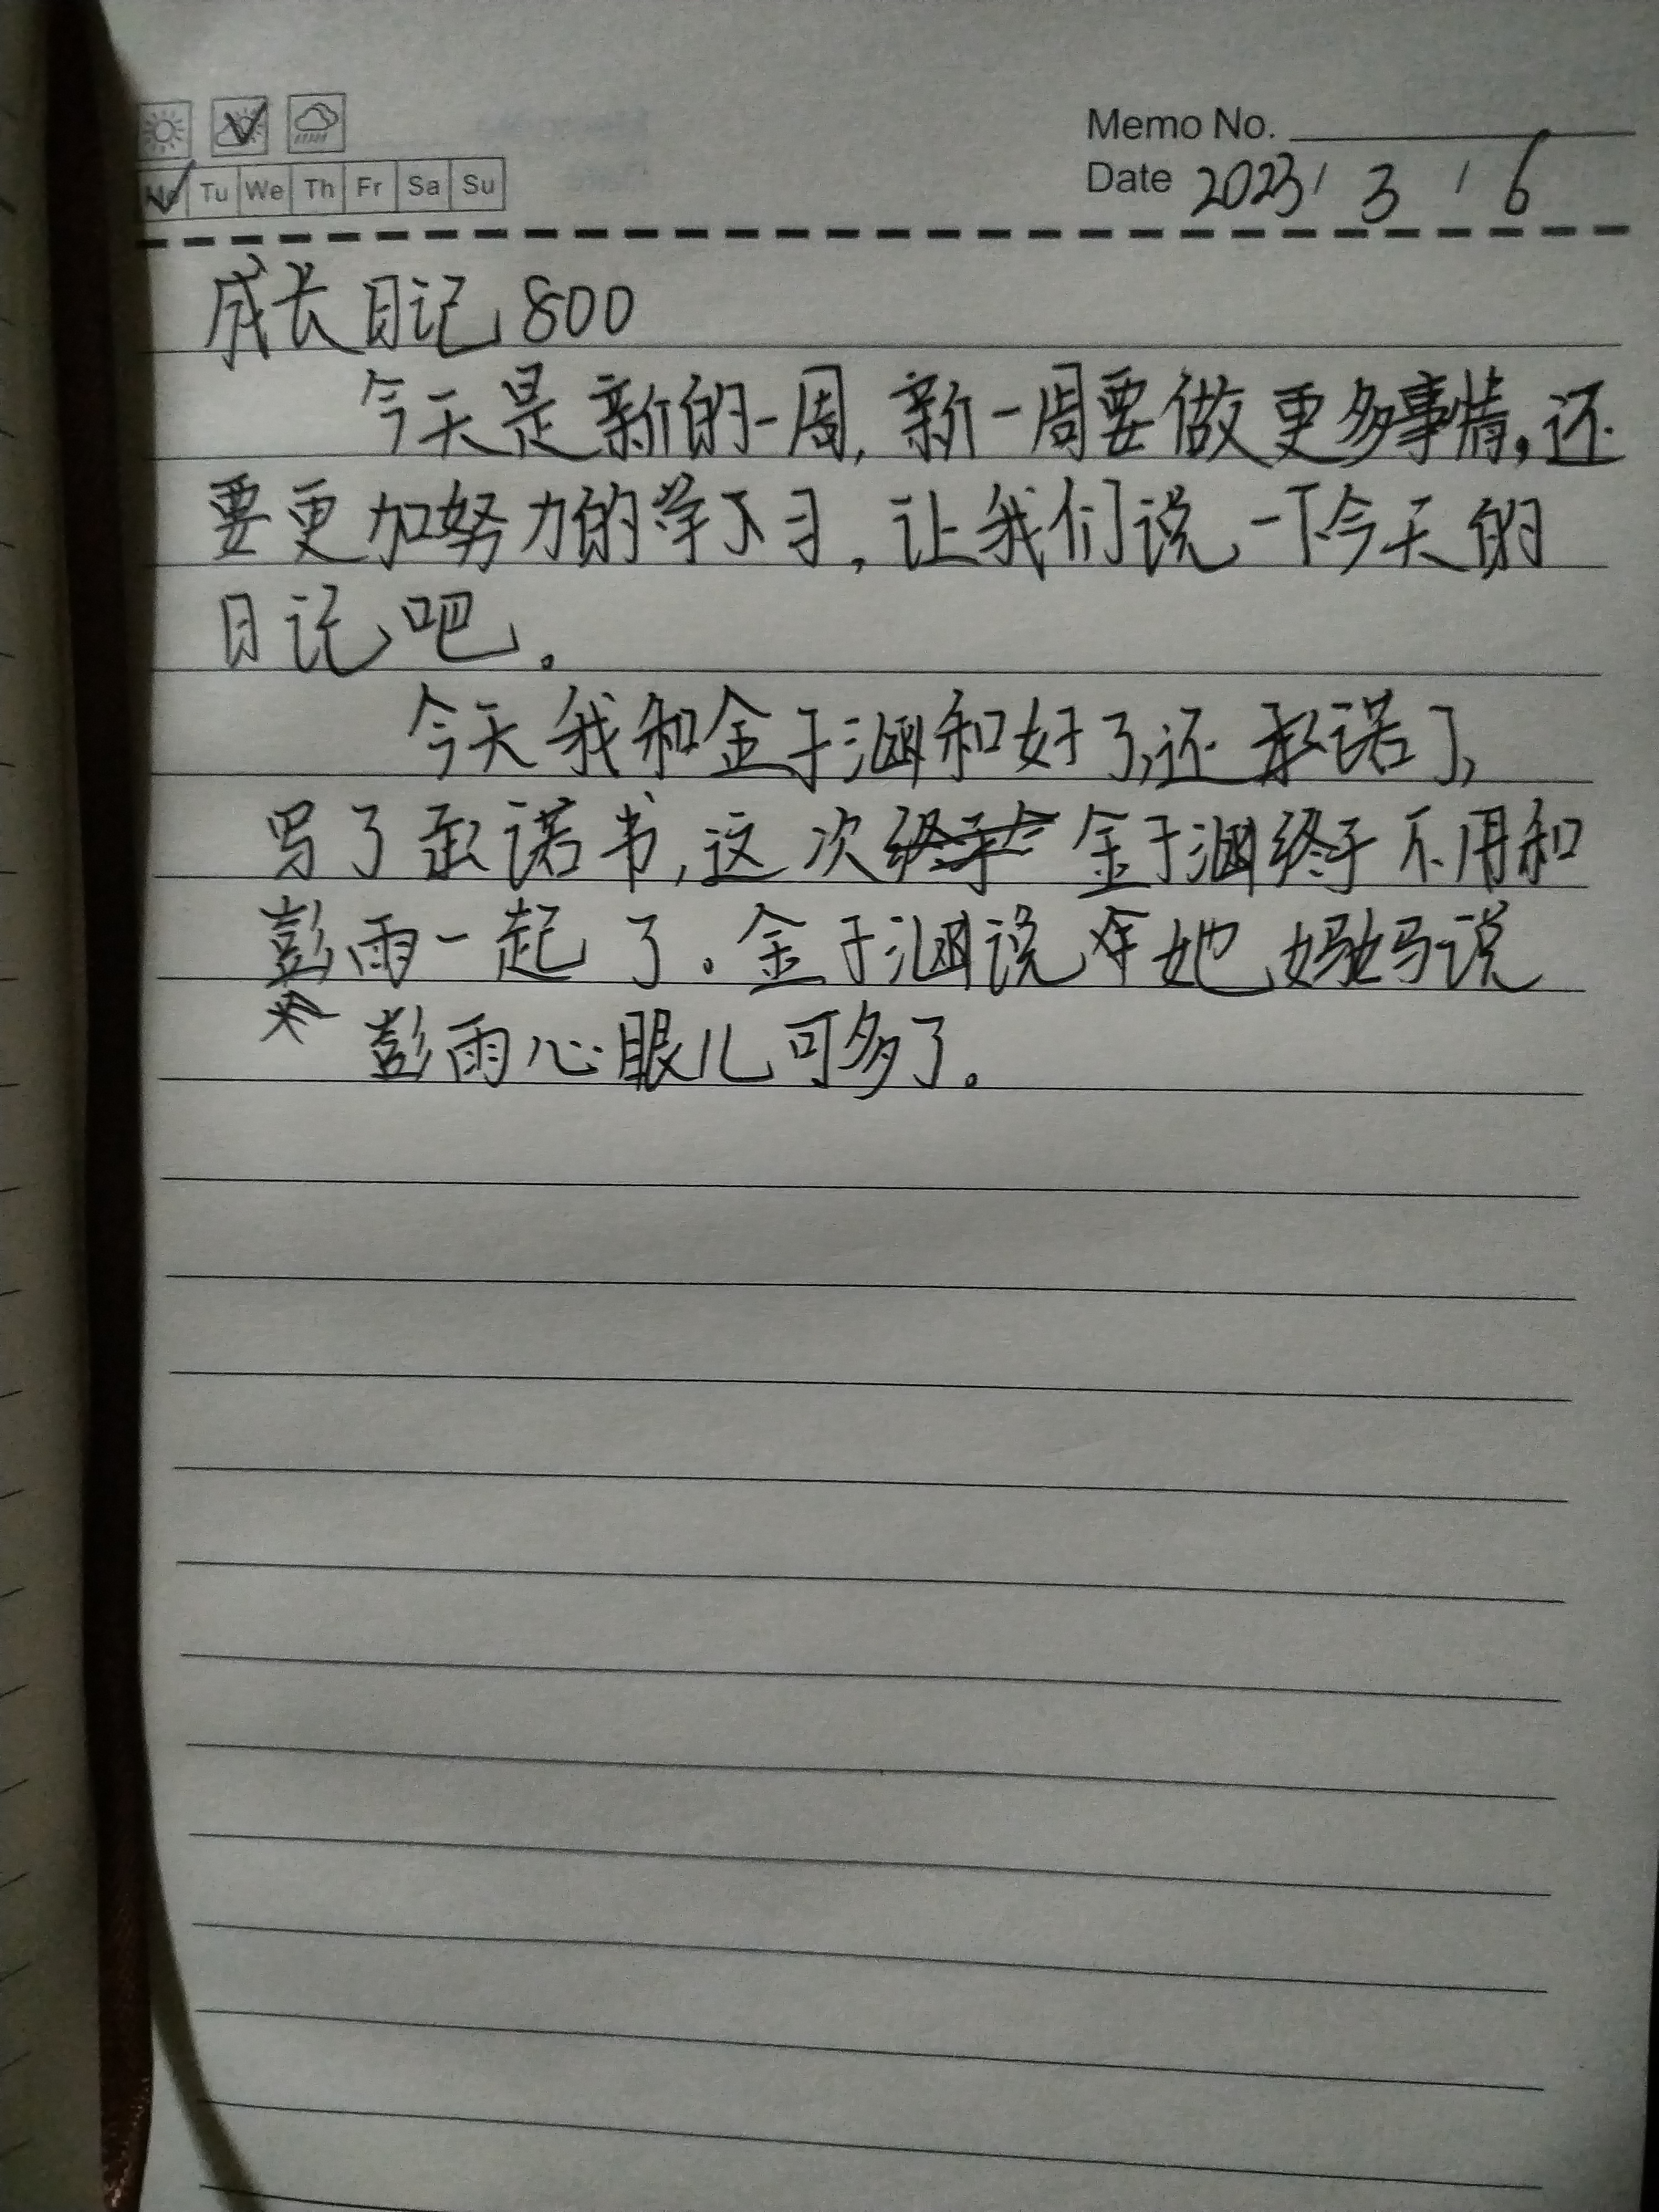 Memo No.
Mo Tu We Th Fr Sa Su
Date 2023 / 3 / 6
成长日记800
今天是新的一周，新一周要做更多事情，还
要更加努力的学习，让我们说一下今天的
日记吧。
今天我和金于涵和好了，还承诺了，
写了承诺书，这次金于涵终于不用和
彭雨一起了。金于涵说她妈妈说
彭雨心眼儿可多了。